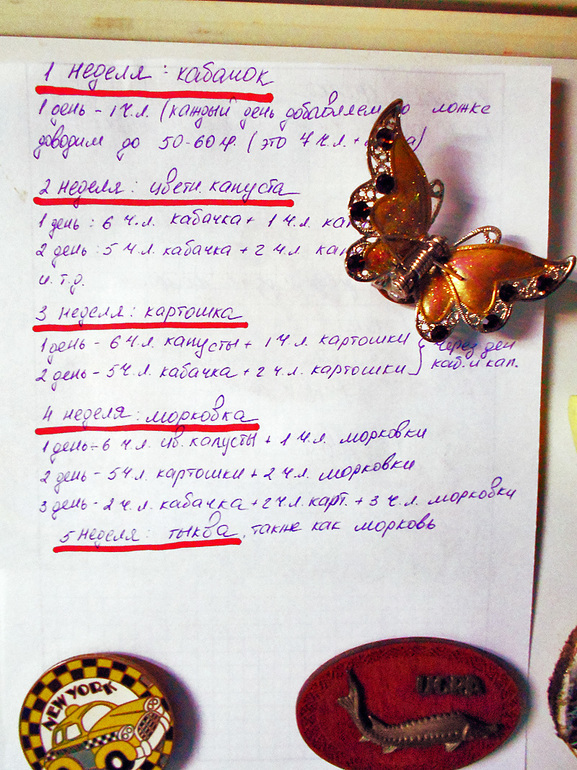 1 неделя : кабачок
1 день - 1 ч.л. (каждый день добавляем по ложке
доводим до 50-60 гр. (это 7 ч.л. +
2 неделя : цветн. капуста
1 день : 6 ч.л. кабачка + 1 ч.л. кап
2 день : 5 ч.л. кабачка + 2 ч.л. кап
и т.д.
3 неделя : картошка
1 день - 6 ч.л. капусты + 1 ч.л. картошки } через ден
2 день - 5 ч.л. кабачка + 2 ч.л. картошки } каб. и кап.
4 неделя : морковка
1 день - 6 ч.л. цв. капусты + 1 ч.л. морковки
2 день - 5 ч.л. картошки + 2 ч.л. морковки
3 день - 2 ч.л. кабачка + 2 ч.л. карт. + 3 ч.л. морковки
5 неделя : тыква, также как морковь
NEW YORK